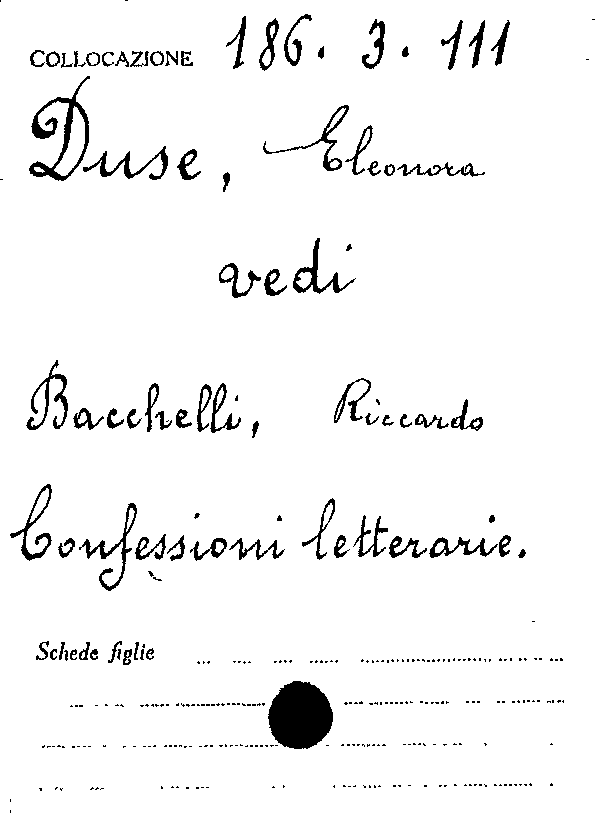 COLLOCAZIONE 186. 3. 111
Duse, Eleonora
vedi
Bacchelli, Riccardo
Confessioni letterarie.
Schede figlie